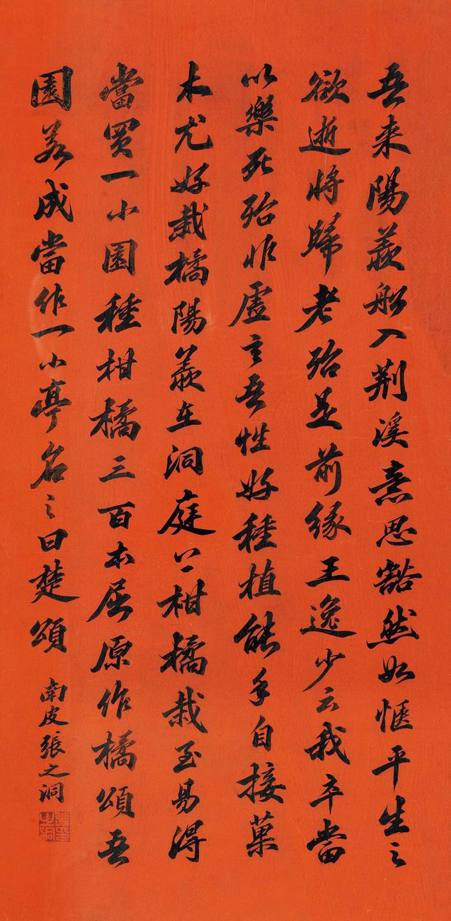 吾来陽羨船入荆溪意思豁然如惬平生之
欲逝将歸老殆是前缘王逸少云我卒當
以樂死殆非虚言吾性好種植能手自接菓
木尤好栽橘陽羨在洞庭上柑橘栽至易得
當買一小園種柑橘三百本屈原作橘頌吾
園若成當作一小亭名之曰楚頌
南皮張之洞